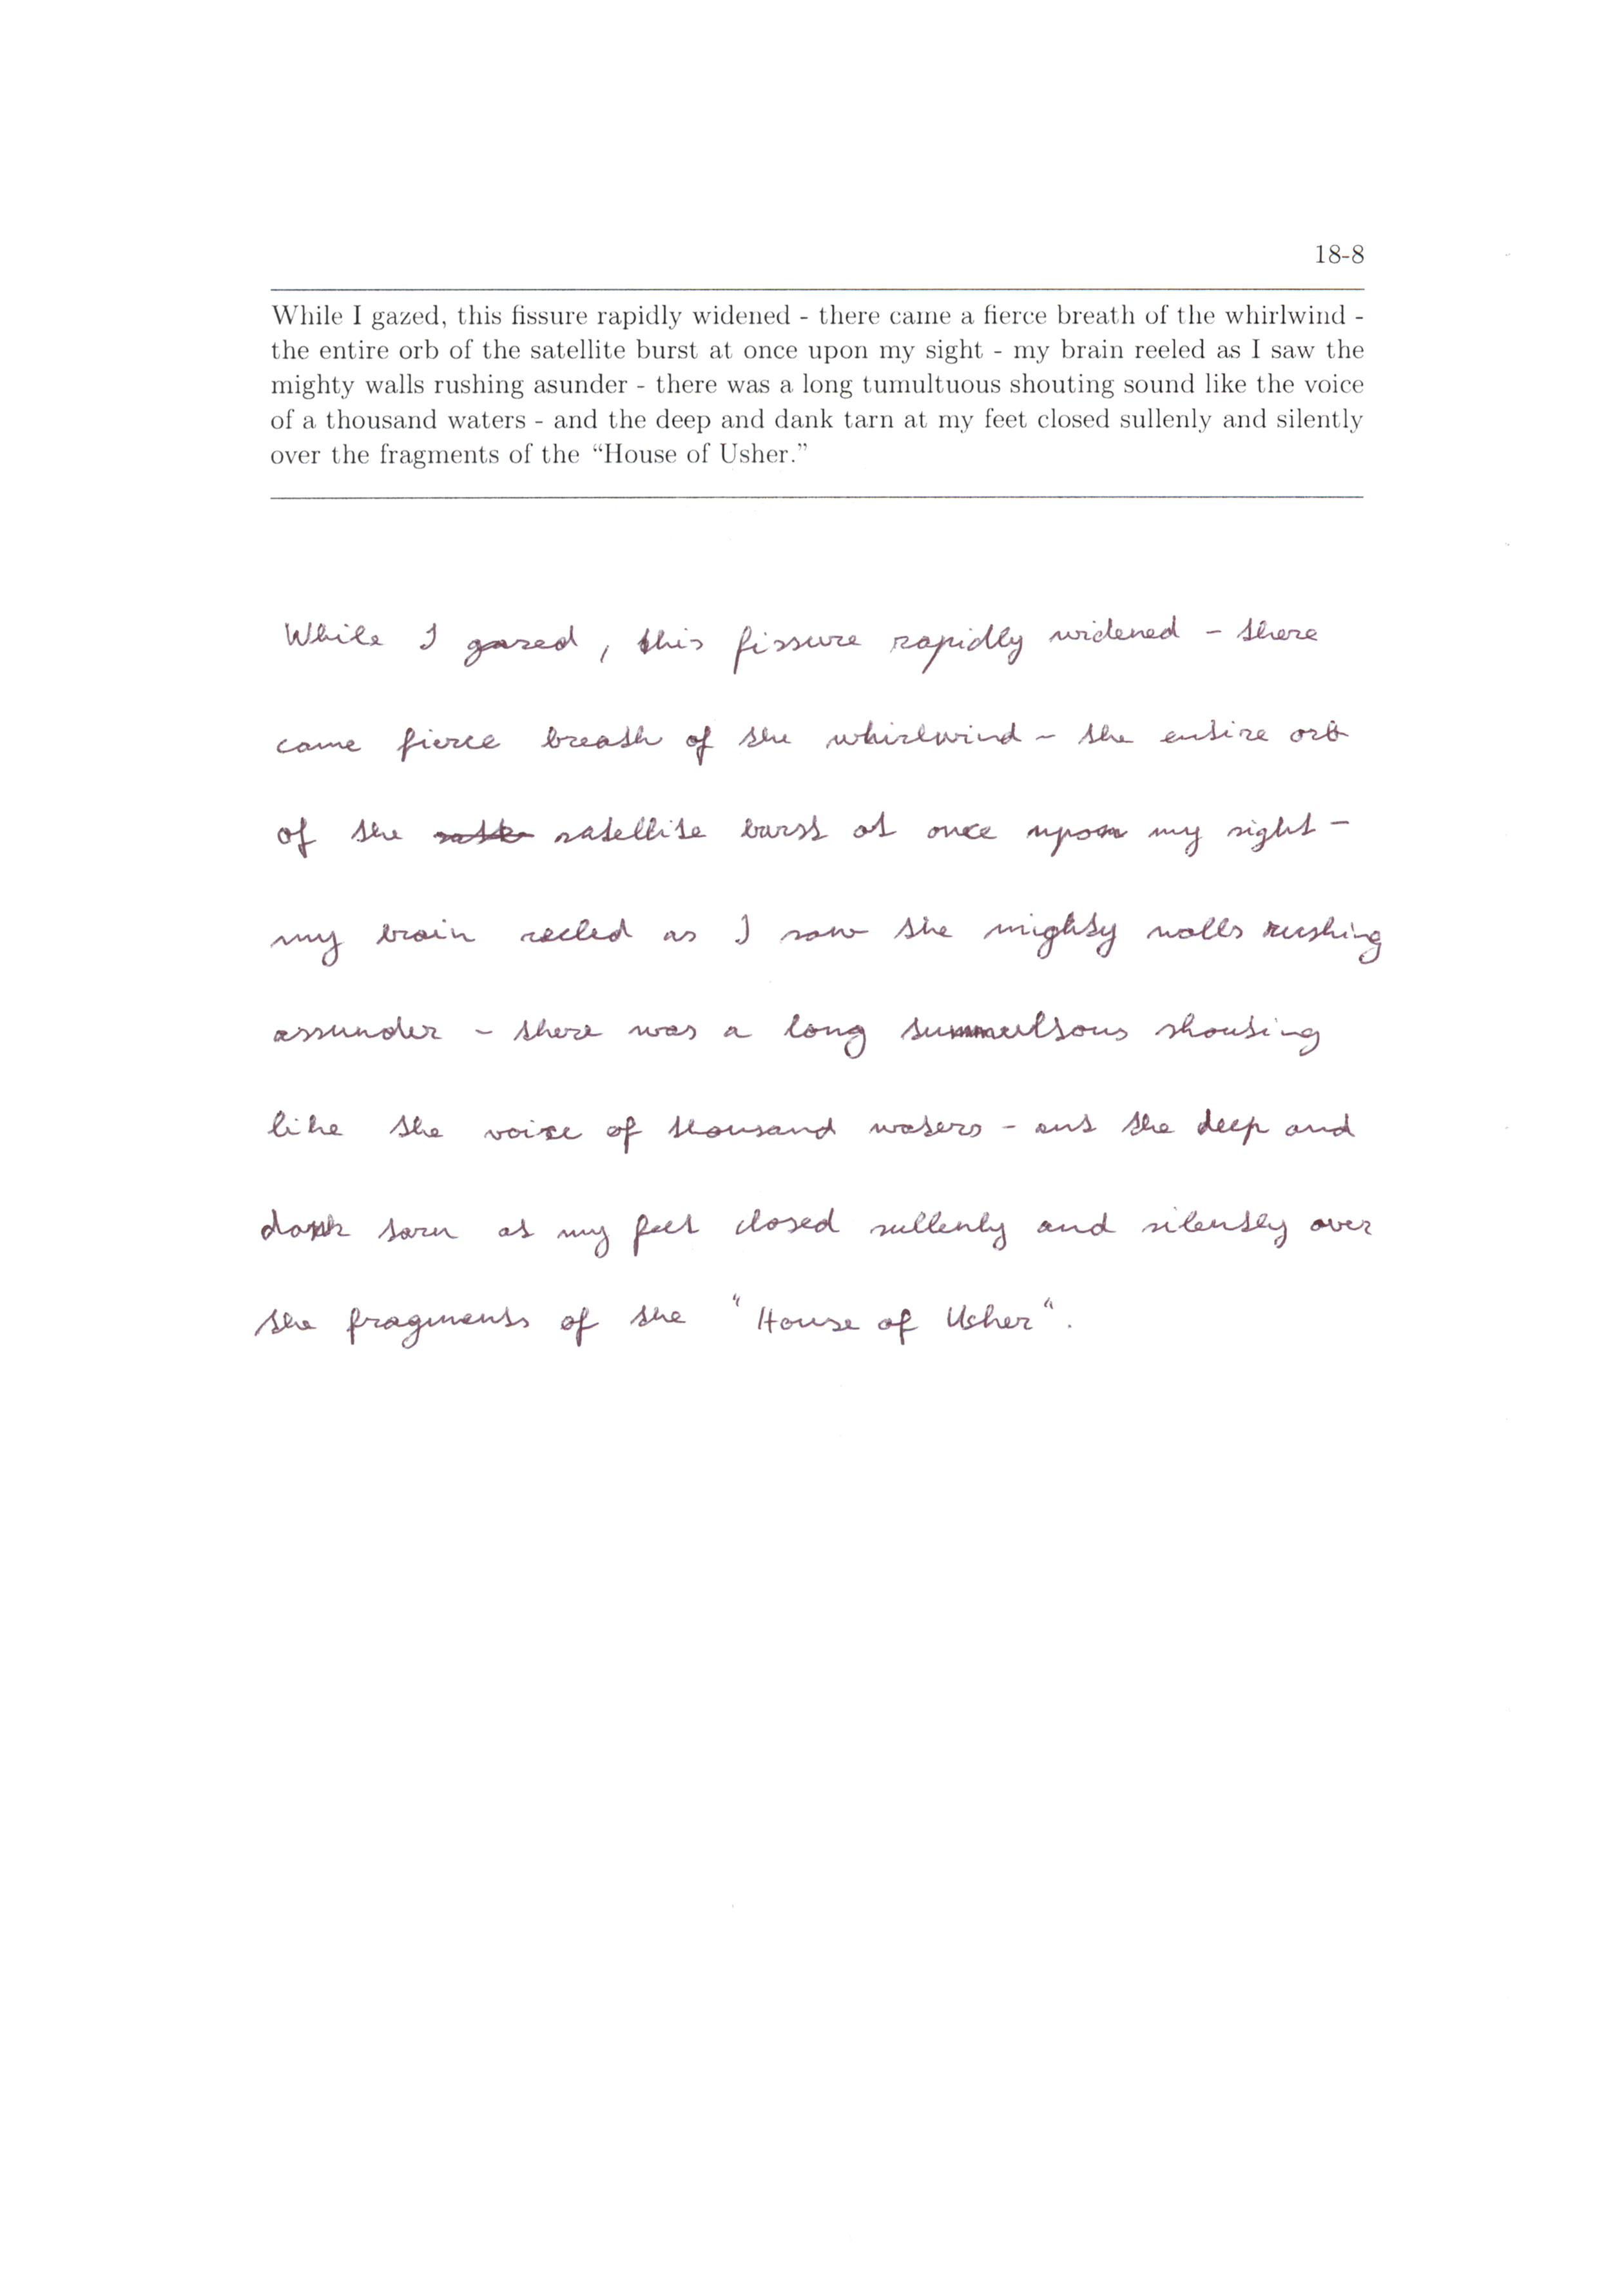 18-8
While I gazed, this fissure rapidly widened - there came a fierce breath of the whirlwind -
the entire orb of the satellite burst at once upon my sight - my brain reeled as I saw the
mighty walls rushing asunder - there was a long tumultuous shouting sound like the voice
of a thousand waters - and the deep and dank tarn at my feet closed sullenly and silently
over the fragments of the “House of Usher.”
While I gazed, this fissure rapidly widened - there
came fierce breath of the whirlwind - the entire orb
of the satellite burst at once upon my sight -
my brain reeled as I saw the mighty walls rushing
assunder - there was a long tummultous shouting
like the voice of thousand waters - ant the deep and
dank tarn at my feet closed sullenly and silently over
the fragments of the "House of Usher".